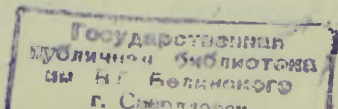 Государственная
публичная библиотека
им. В.Г. Белинского
г. Свердловск